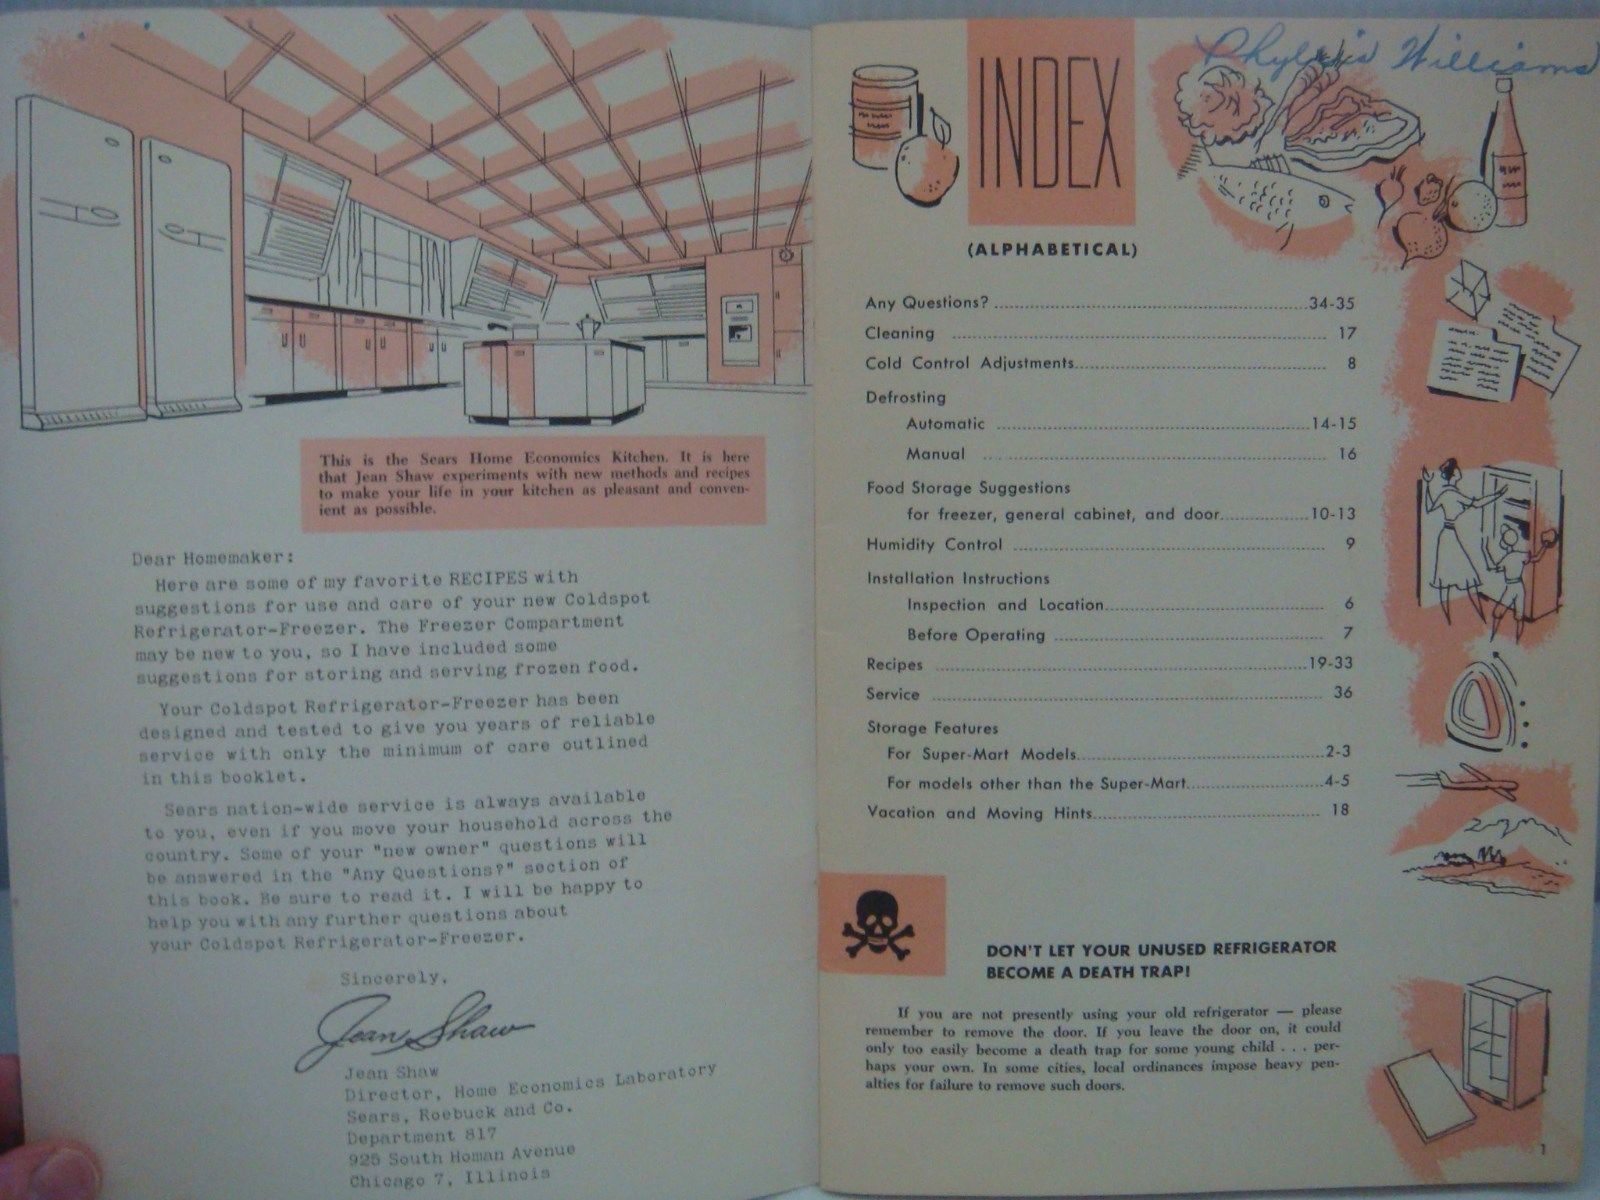 This is the Sears Home Economics Kitchen. It is here
that Jean Shaw experiments with new methods and recipes
to make your life in your kitchen as pleasant and conven-
ient as possible.
Dear Homemaker:
Here are some of my favorite RECIPES with
suggestions for use and care of your new Coldspot
Refrigerator-Freezer. The Freezer Compartment
may be new to you, so I have included some
suggestions for storing and serving frozen food.
Your Coldspot Refrigerator-Freezer has been
designed and tested to give you years of reliable
service with only the minimum of care outlined
in this booklet.
Sears nation-wide service is always available
to you, even if you move your household across the
country. Some of your "new owner" questions will
be answered in the "Any Questions?" section of
this book. Be sure to read it. I will be happy to
help you with any further questions about
your Coldspot Refrigerator-Freezer.
Sincerely,
Jean Shaw
Jean Shaw
Director, Home Economics Laboratory
Sears, Roebuck and Co.
Department 817
925 South Homan Avenue
Chicago 7, Illinois
Phyllis Williams
INDEX
(ALPHABETICAL)
Any Questions? 34-35
Cleaning 17
Cold Control Adjustments 8
Defrosting
Automatic 14-15
Manual 16
Food Storage Suggestions
for freezer, general cabinet, and door 10-13
Humidity Control 9
Installation Instructions
Inspection and Location 6
Before Operating 7
Recipes 19-33
Service 36
Storage Features
For Super-Mart Models 2-3
For models other than the Super-Mart 4-5
Vacation and Moving Hints 18
DON'T LET YOUR UNUSED REFRIGERATOR
BECOME A DEATH TRAP!
If you are not presently using your old refrigerator — please
remember to remove the door. If you leave the door on, it could
only too easily become a death trap for some young child . . . per-
haps your own. In some cities, local ordinances impose heavy pen-
alties for failure to remove such doors.
1